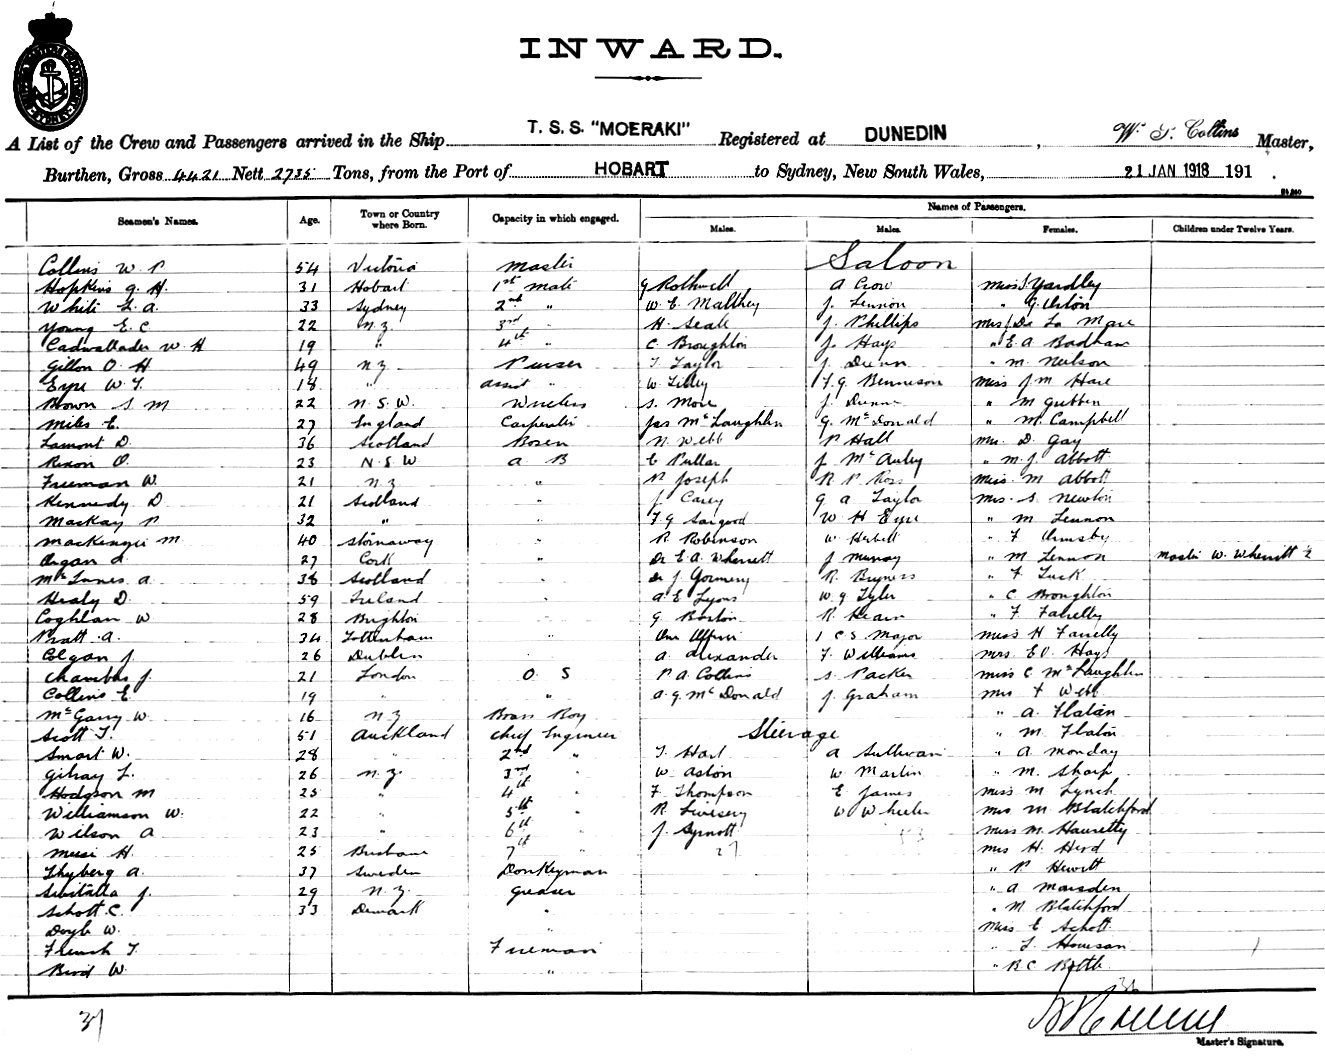 INWARD.
A List of the Crew and Passengers arrived in the Ship T. S. S. "MOERAKI" Registered at DUNEDIN, W. J. Collins Master,
Burthen, Gross 4421 Nett 2735 Tons, from the Port of HOBART to Sydney, New South Wales, 21 JAN 1918 191 .
Names of Passengers.
Seamen's Names. Age. Town or Country where Born. Capacity in which engaged. Males. Males. Females. Children under Twelve Years.
Saloon
Collins W P 54 Victoria Master
Hopkins G. H. 31 Hobart 1st Mate G Rothwell A Crow Miss J Yardley
White F. A. 33 Sydney 2nd " W. E. Malthey J. Lennon " G. Urton
Young E. C 22 N.Z. 3rd " H. Seale J. Phillips Mrs J De La Mare
Cadwallader W H 19 " 4th " C Broughton J. Hays " E A Badham
Gillon O. H 49 N Z Purser T. Taylor J. Dunn " M. Neilson
Eyre W. T. 18 " Assist " W Lilley F. G. Bennison Miss J. M. Hare
Brown S M 22 N. S. W. Wireless S. More J. Dunne " M Gubben
Miles E. 27 England Carpenter Jas McLaughlin G. McDonald " M. Campbell
Lamont D. 36 Scotland Bosen N. Webb P Hall Mrs. D. Gay
Rixon O. 23 N. S W A B C Pullar J. McAuley " M. J. Abbott
Freeman W. 21 N Z " P Joseph R P Ross Miss M Abbott
Kennedy D 21 Scotland " J Carey G A Taylor Mrs. S. Newton
Mackay P 32 " " F. G Sargood W H Eyre " M Lennon
MacKenzie M 40 Stornaway " R Robinson W Herbell " F Ormsby
Organ A 27 Cork " Dr E. A. Wherrett J Murray " M Lennon Master W. Wherritt ½
McInnes A. 38 Scotland " Dr J Gormery R. Byness " F Luck
Healy D. 59 Ireland " A E Lyons W G Tyler " C Broughton
Coghlan W 28 Brighton " G Barton R Hearn " F Farrelly
Pratt A. 34 Tottenham " One Officer 1 C S Major Miss H Farrelly
Colgan J. 26 Dublin " A. Alexander F. Williams Mrs. E V. Hays
Chambers J. 21 London O. S P. A. Collins S. Packer Miss C McLaughlin
Collins E 19 " " A. G. McDonald J. Graham Mrs F Webb
McGarry W. 16 N. Z Brass Boy " A. Flatan
Scott T. 51 Auckland Chief Engineer Steerage " M. Flatan
Smart W. 28 " 2nd " T. Hart A Sullivan " A Monday
Gilray L. 26 N. Z. 3rd " W Aston W Martin " M. Sharp
Hodgson M 25 " 4th " F Thompson E James Miss M Lynch
Williamson W. 22 " 5th " R Livesey W Wheeler Mrs M Blatchford
Wilson A 23 " 6th " J. Synott 53 Miss M. Hauretty
Meier H. 25 Brisbane 7th " 27 Mrs H. Herd
Thyberg A. 37 Sweden Donkeyman " P Hewitt
J. 29 N. Z. Greaser " A Marsden
Schott C. 33 Demark " " M Blatchford
Doyle W. " Miss E Schott
French T Fireman " L. Howisan
Bird W. " " B C Bottle
36
37
W P Collins
Master's Signature.